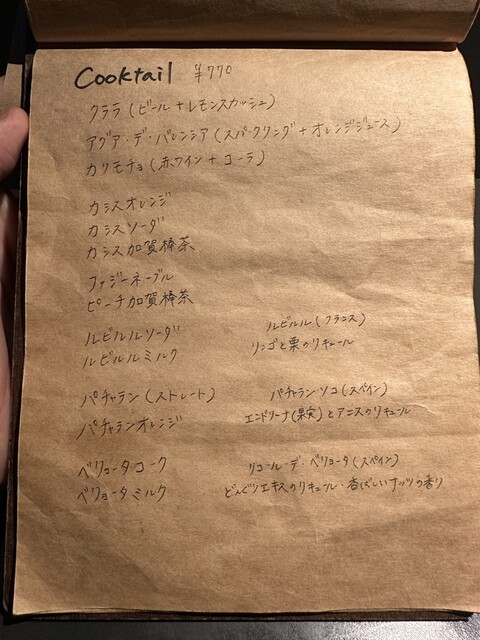 Cooktail ¥770
クララ(ビール+レモンスカッシュ)
アグア・デ・バレンシア(スパークリング+オレンジジュース)
カリモチョ(赤ワイン+コーラ)
カシスオレンジ
カシスソーダ
カシス加賀棒茶
ファジーネーブル
ピーチ加賀棒茶
ルビルルソーダ ルビルル(フランス)
ルビルルミルク リンゴと栗のリキュール
パチャラン(ストレート) パチャランソコ(スペイン)
パチャランオレンジ エンドリーナ(果実)とアニスのリキュール
ベリョータコーク リコールデ・ベリョータ(スペイン)
ベリョータミルク どんぐりエキスのリキュール・香ばしいナッツの香り